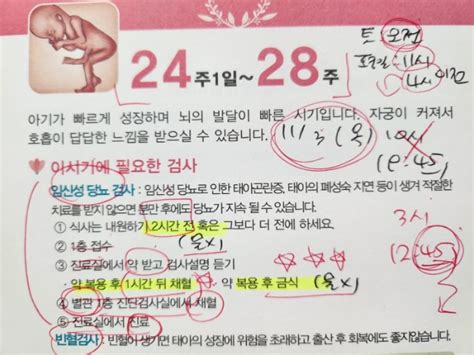 24주1일~28주
토:오전
11시
4시 이전
아기가 빠르게 성장하며 뇌의 발달이 빠른 시기입니다. 자궁이 커져서
호흡이 답답한 느낌을 받으실 수 있습니다.
11/3 (목)
10시
이시기에 필요한 검사
임신성 당뇨 검사 : 임신성 당뇨로 인한 태아곤란증, 태아의 폐성숙 지연 등이 생겨 적절한
치료를 받지 않으면 분만 후에도 당뇨가 지속 될 수 있습니다.
① 식사는 내원하기 2시간 전 혹은 그보다 더 전에 하세요.
3시
② 1층 접수
(물x)
12:45
③ 진료실에서 약 받고 검사설명 듣기
- 약 복용 후 1시간 뒤 채혈
약 복용 후 금식 (물x)
④ 별관 1층 진단검사실에서 채혈
⑤ 진료실에서 진료
빈혈검사 : 빈혈이 생기면 태아의 성장에 위험을 초래하고 출산 후 회복에도 좋지않습니다.